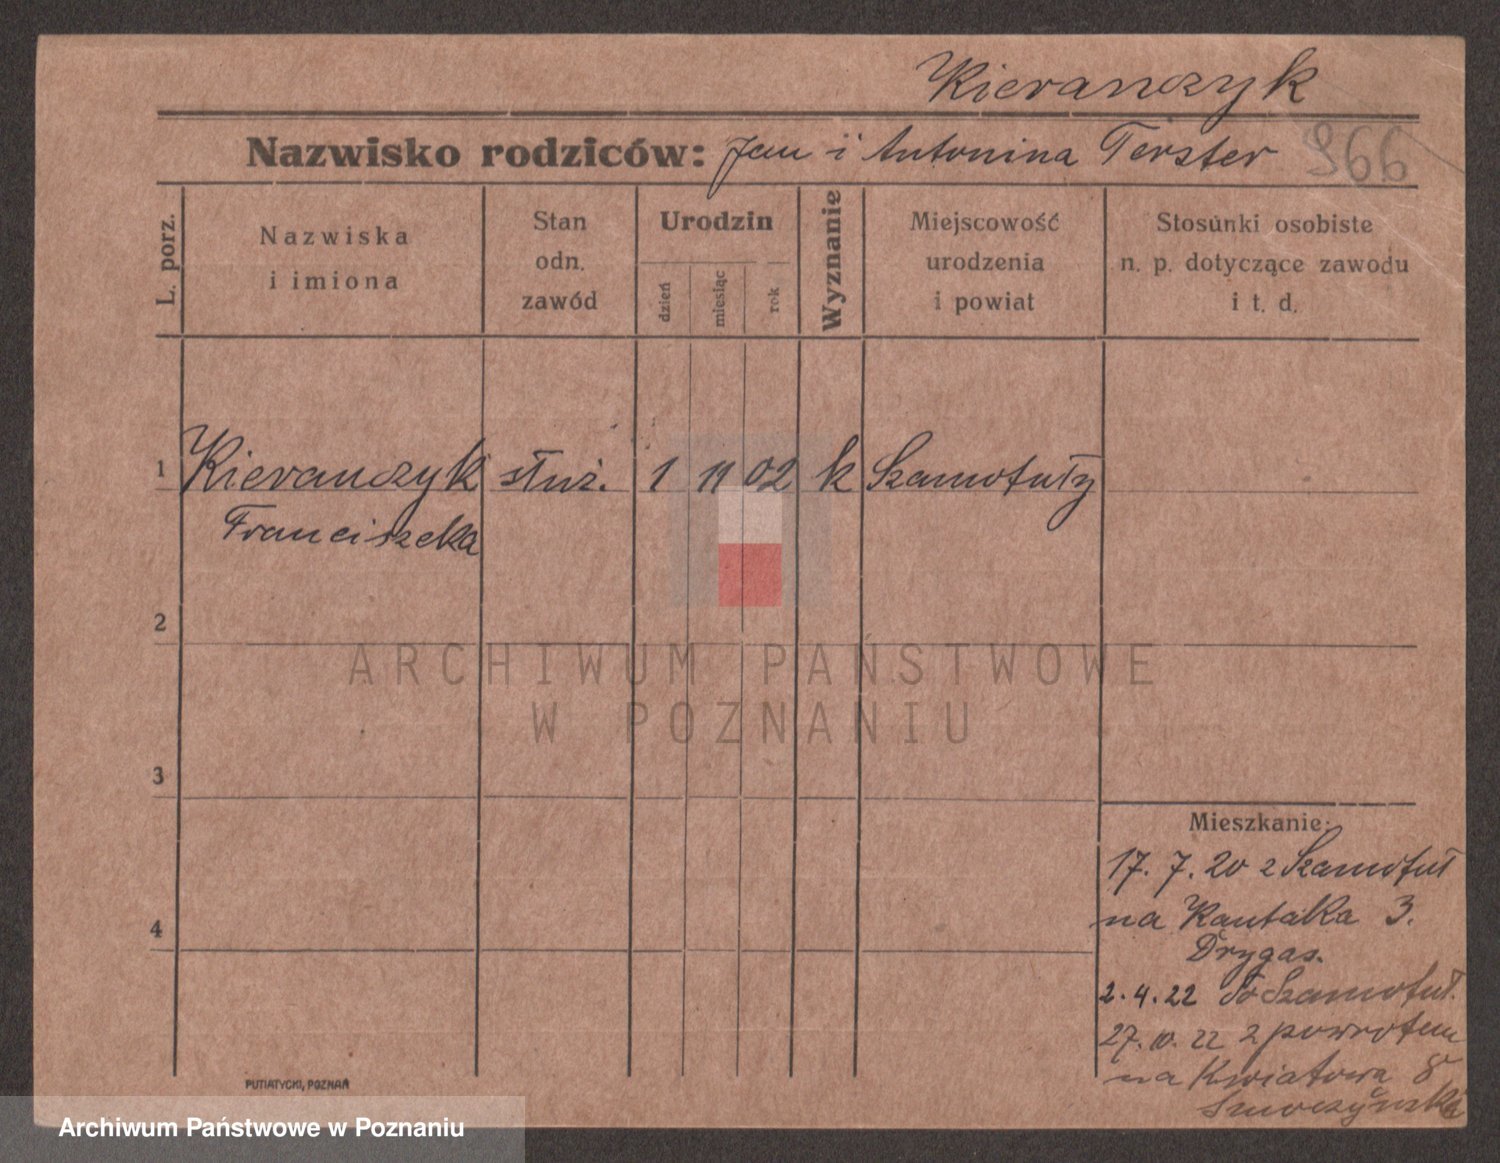 Kieranczyk
Nazwisko rodziców: Jan i Antonina Terster 966
L. porz.
Nazwiska
i imiona
Stan
odn.
zawód
Urodzin
dzień
miesiąc
rok
Wyznanie
Miejscowość
urodzenia
i powiat
Stosunki osobiste
n. p. dotyczące zawodu
i t. d.
1 Kieranczyk służ. 1 11 02 k Szamotuły
Franciszeka
2
ARCHIWUM PAŃSTWOWE
W POZNANIU
3
Mieszkanie:
17. 7. 20 z Szamotuł
na Kantaka 3.
Drygas.
4
2. 4. 22 do Szamotuł.
27. 10. 22 z powrotem
na Kwiatowa 8
Smoczyńska
PUTIATYCKI, POZNAŃ
Archiwum Państwowe w Poznaniu